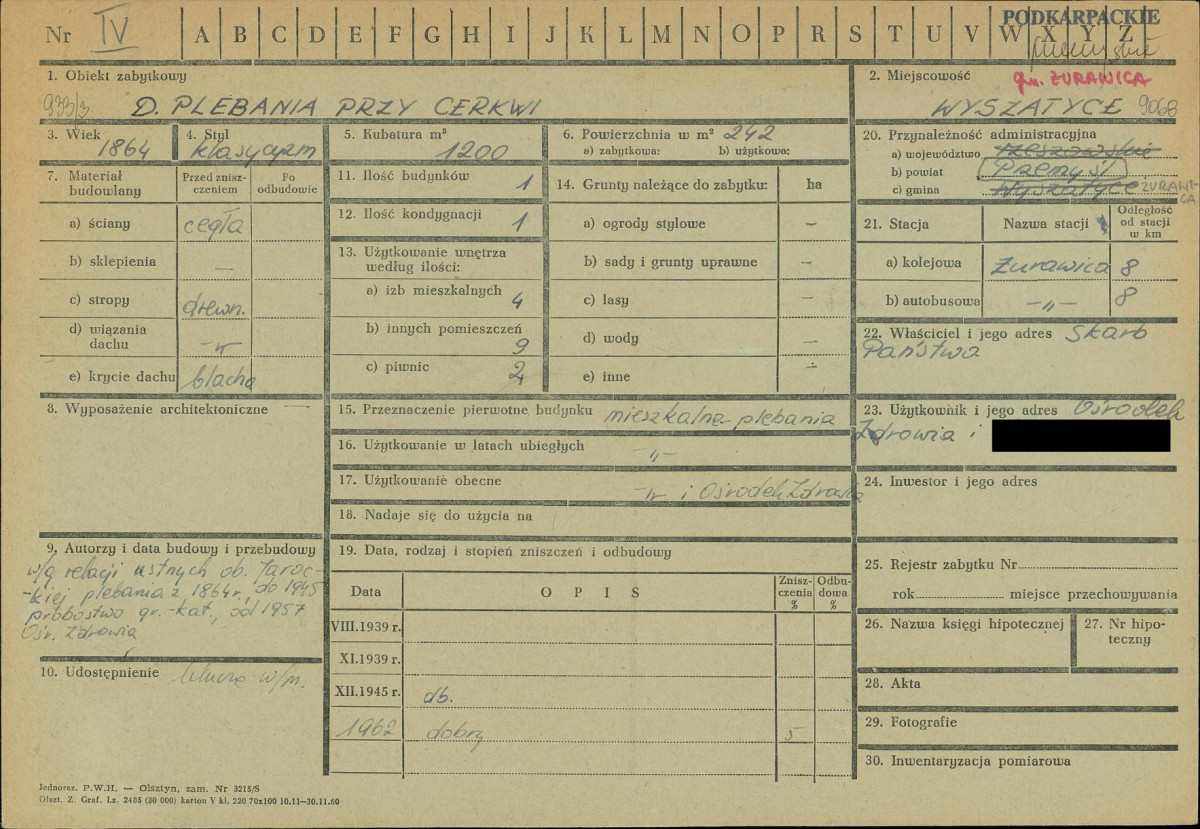 Nr IV A B C D E F G H I J K L M N O P R S T U V W X Y Z
PODKARPACKIE
1. Obiekt zabytkowy
933/3 D. PLEBANIA PRZY CERKWI
2. Miejscowość gm. ŻURAWICA
WYSZATYCE 9068
3. Wiek
1864
4. Styl
klasycyzm
5. Kubatura m³
1200
6. Powierzchnia w m² 242
a) zabytkowa: b) użytkowa:
7. Materiał budowlany
Przed zniszczeniem
Po odbudowie
a) ściany cegła
b) sklepienia —
c) stropy drewn.
d) wiązania dachu -„-
e) krycie dachu blacha
8. Wyposażenie architektoniczne —
9. Autorzy i data budowy i przebudowy
w/g relacji ustnych ob. Jaroc-
-kiej plebania z 1864 r., do 1945
probostwo gr.-kat., od 1957
Ośr. Zdrowia
10. Udostępnienie klucze w/m.
11. Ilość budynków 1
12. Ilość kondygnacji 1
13. Użytkowanie wnętrza według ilości:
a) izb mieszkalnych 4
b) innych pomieszczeń 9
c) piwnic 2
14. Grunty należące do zabytku: ha
a) ogrody stylowe —
b) sady i grunty uprawne —
c) lasy —
d) wody —
e) inne —
15. Przeznaczenie pierwotne budynku mieszkalne-plebania
16. Użytkowanie w latach ubiegłych -„-
17. Użytkowanie obecne -„- i Ośrodek Zdrowia
18. Nadaje się do użycia na
19. Data, rodzaj i stopień zniszczeń i odbudowy
Data OPIS Zniszczenia % Odbudowa %
VIII.1939 r.
XI.1939 r.
XII.1945 r. db.
1962 dobry 5
20. Przynależność administracyjna
a) województwo rzeszowskie
b) powiat Przemyśl
c) gmina Wyszatyce ŻURAWICA
21. Stacja Nazwa stacji Odległość od stacji w km
a) kolejowa Żurawica 8
b) autobusowa -„- 8
22. Właściciel i jego adres Skarb
Państwa
23. Użytkownik i jego adres Ośrodek
Zdrowia i
24. Inwestor i jego adres
25. Rejestr zabytku Nr
rok miejsce przechowywania
26. Nazwa księgi hipotecznej
27. Nr hipoteczny
28. Akta
29. Fotografie
30. Inwentaryzacja pomiarowa
Jednoraz. P.W.H. — Olsztyn, zam. Nr 3215/S
Olszt. Z. Graf. Lz. 2485 (30 000) karton V kl. 220 70x100 10.11—30.11.60